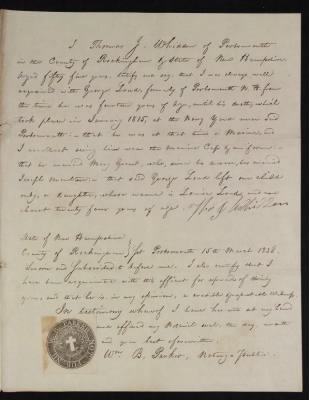 I Thomas J. Whidden of Portsmouth
in the County of Rockingham & State of New Hampshire
aged fifty four years, testify and say, that I was always well
acquainted with George Loud, formerly of Portsmouth N. H. from
the time he was fourteen years of age, until his death, which
took place in January 1815, at the Navy Yard near said
Portsmouth:- that he was at that time a Marine, and
I recollect seeing him wear the Marine Cap & uniform:-
that he married Mary Grant, who, since his decease, has married
Joseph :- that said George Loud left one child
only, a daughter, whose name is Loud, and now
about twenty four years of age. Thos J. Whidden
State of New Hampshire
County of Rockingham } ss. Portsmouth 15th March 1838.
Sworn and Subscribed to before me. I also certify that I
have been acquainted with the affiant for upwards of thirty
years, and that he is, in my opinion, a credible & respectable witness.
In testimony whereof I have hereunto set my hand
and affixed my Notarial seal, the day, month
and year last aforewritten
Wm B. Parker, Notary Public.